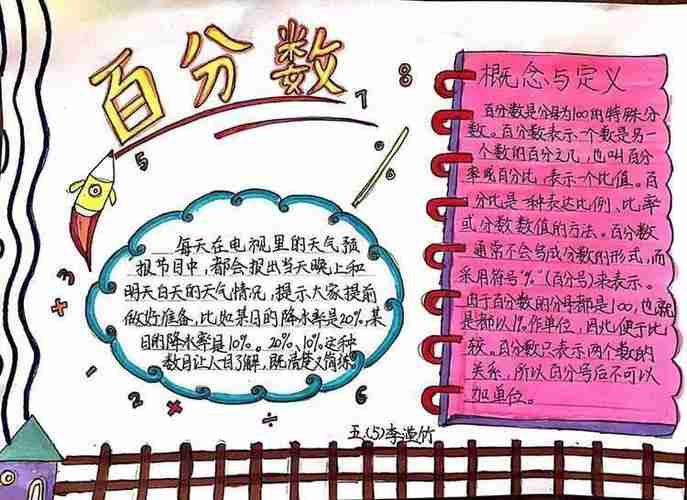 百分数
8
7
5
每天在电视里的天气预
报节目中,都会报出当天晚上和
明天白天的天气情况,提示大家提前
做好准备,比如某日的降水率是20%,某
日的降水率是10%。20%、10%这种
数目让人一目了解,既清楚又简练
概念与定义
百分数是分母为100的特殊分
数。百分数表示一个数是另一
个数的百分之几,也叫百分
率或百分比,表示一个比值。百
分比是一种表达比例、比率
或分数数值的方法。百分数
通常不会写成分数的形式,而
采用符号"%"(百分号)来表示。
由于百分数的分母都是100,也就
是都以1%作单位,因此便于比
较。百分数只表示两个数的
关系,所以百分号后不可以
加单位。
6
3
×
+
1
2
×
÷
6
五(5)李滢竹